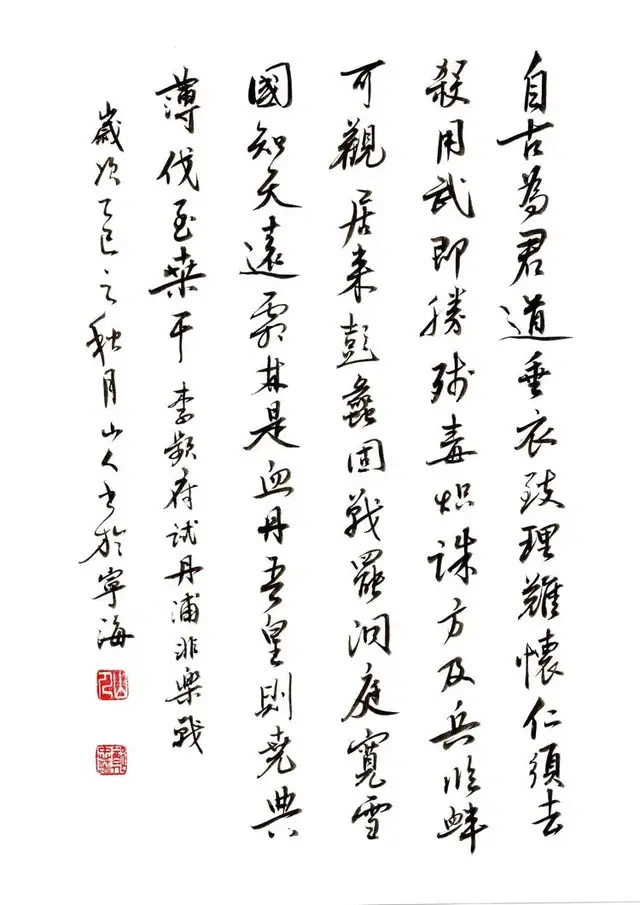 自古為君道垂衣致理難懷仁須去
殺用武即勝残毒炽誅方及兵臨衅
可觀居来彭蠡固戰罷洞庭寬雪
國知天遠霜林是血丹吾皇則堯典
薄伐至桑干 李頻府試丹浦非樂戰
歲次乙巳之秋月山人書於寧海
山人